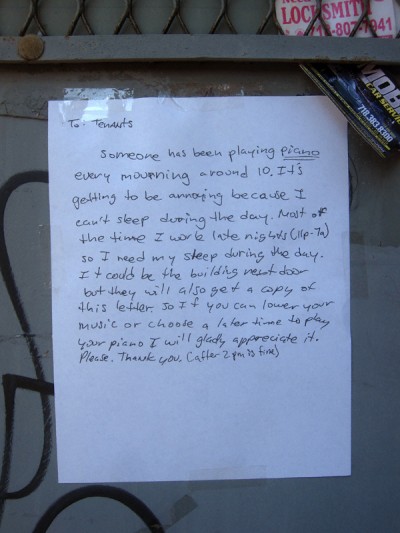 LOCKSMITH
MOB
CAR SERVICE
718.383.8300
To: Tenants
Someone has been playing piano
every mourning around 10. It's
getting to be annoying because I
can't sleep during the day. Most of
the time I work late nights (11p-7a)
so I need my sleep during the day.
It could be the building next door
but they will also get a copy of
this letter. So If you can lower your
music or choose a later time to play
your piano I will gladly appreciate it.
Please. Thank you. (after 2pm is fine)